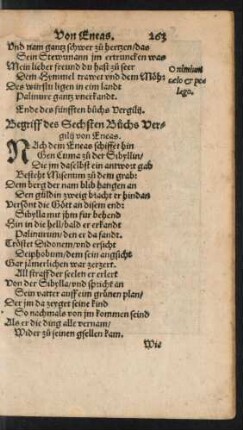 Von Eneas. 263
Und nam gantz schwer zů hertzen/das
Sein Stewrmann jm ertruncken was
Mein lieber freund du hast zů ser
Dem Hymmel trawet vnd dem Möhr
O nimium
caelo & pe-
lago.
Des můstu ligen in eim landt
Palinure gantz vnerkandt.
Ende des fünfften bůchs Vergilij.
Begriff des Sechsten Bůchs Ver-
gilij von Eneas.
Nach dem Eneas schiffet hin
Gen Cuma zů der Sibyllin/
Die jm daselbst ein antwort gab
Besteht Misenum zů dem grab:
Dem berg der nam blib hangen an
Den güldin zweig bracht er hindan
Versönt die Gött an disem end:
Sibylla mit jhm für behend
Hin in die hell/bald er erkant
Palinurum/den er da fandt.
Tröstet Didonem/vnd ersicht
Deiphobum/dem sein angsicht
Gar jämerlichen war zerzert.
All straff der seelen er erlert
Von der Sibylla/vnd spricht an
Sein vatter auff eim grünen plan/
Der jm da zeyget seine kind
So nachmals von jm kommen seind
Als er die ding alle vernam/
Wider zů seinen gsellen kam.
Wie